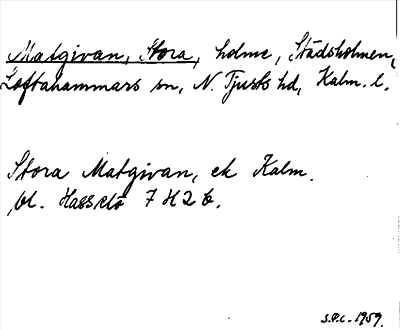 Matgivan, Stora, holme, Städsholmen,
Loftahammars sn, N. Tjusts hd, Kalm. l.
Stora Matgivan, ek Kalm.
bl. Hasselö 7 H 2 b.
S.P.C. 1959.